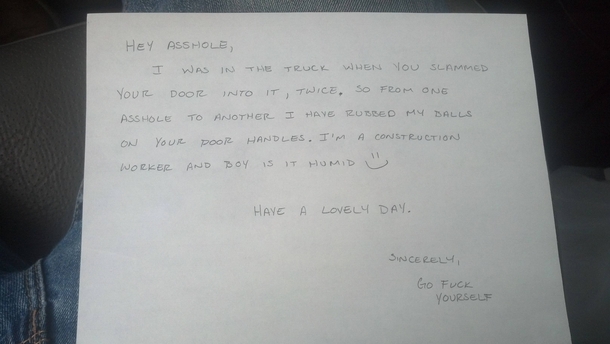 HEY ASSHOLE,
I WAS IN THE TRUCK WHEN YOU SLAMMED
YOUR DOOR INTO IT, TWICE. SO FROM ONE
ASSHOLE TO ANOTHER I HAVE RUBBED MY BALLS
ON YOUR DOOR HANDLES. I'M A CONSTRUCTION
WORKER AND BOY IS IT HUMID
HAVE A LOVELY DAY.
SINCERELY,
GO FUCK
YOURSELF